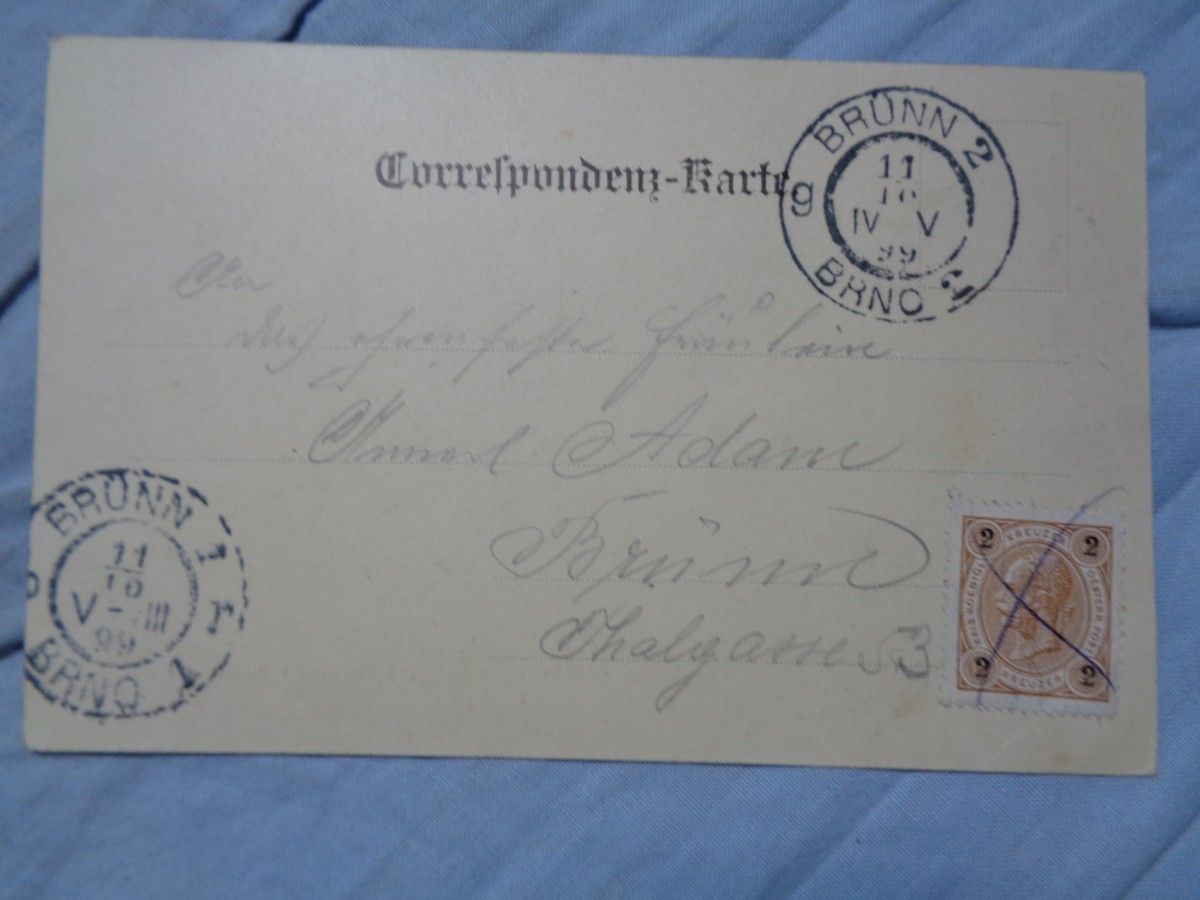 Correspondenz-Karte
BRÜNN 2
g
11
10
IV V
99
BRNO 2
An
das ehrenfeste Fräulein
Adam
Brünn
Thalgasse 3
BRÜNN 1
11
10
V – III
99
BRNO 1
2 KREUZER 2
KAIS KOENIGL OESTERR POST
2 KREUZER 2